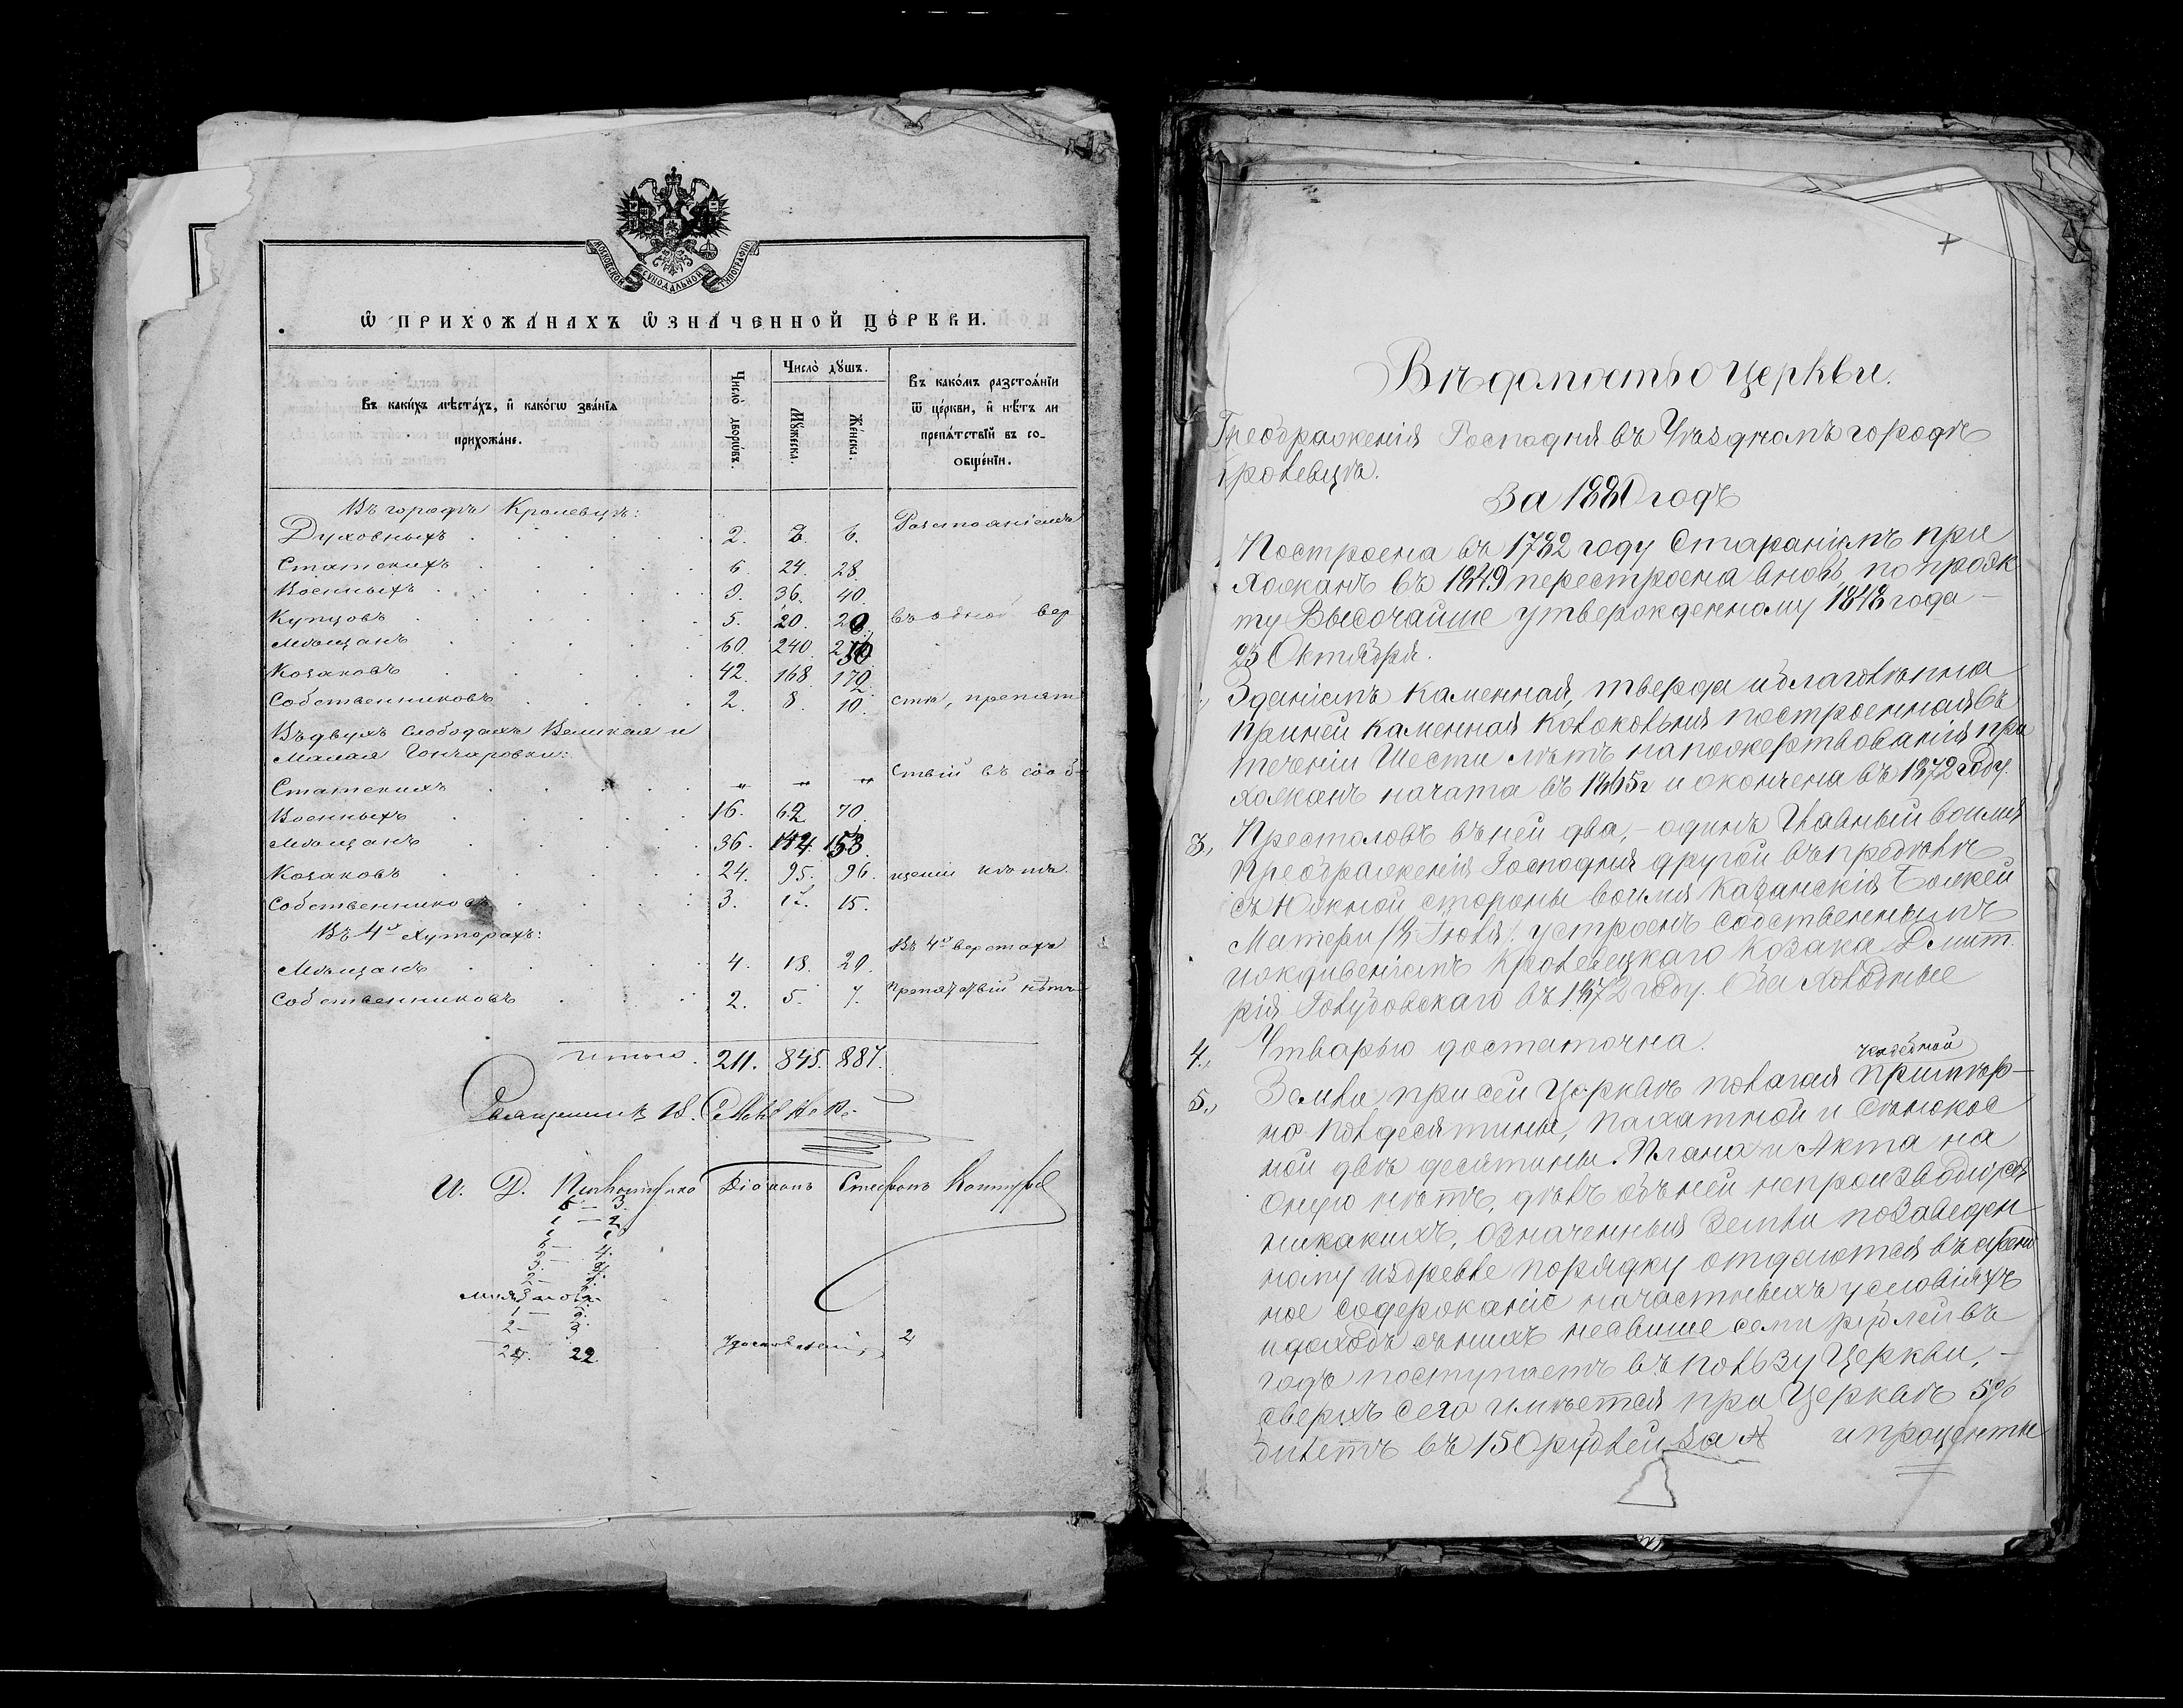 МОСКОВСКОЙ СѴНОДАЛЬНОЙ ТИПОГРАФІИ
Ѡ ПРИХОЖАНАХЪ ѠЗНАЧЕННОЙ ЦЕРКВИ.
Въ какихъ мѣстахъ, и какогѡ званїѧ прихожане.
Число дворѡвъ.
Число дꙋшъ.
Мꙋжеска.
Женска.
Въ какомъ разстоѧнїи ѿ церкви, и нѣтъ ли препѧтствїй въ сообщенїи.
Въ городѣ Кролевцѣ:
Духовныхъ 2. 6. Разстояніемъ
Статскихъ 6. 24. 28.
Военныхъ 9. 36. 40.
Купцовъ 5. 20. 20 въ одной вер
Мѣщанъ 60. 240.
Козаковъ 42. 168. 170.
Собственниковъ 2. 8. 10. стѣ, препят
Въ двухъ слободахъ Великая и
Малая Гончаровки:
Статскихъ „ „ „ ствій въ сооб-
Военныхъ 16. 62 70.
Мѣщанъ 36. 144. 153.
Козаковъ 24. 95. 96. щеніи нѣтъ.
Собственниковъ 3. 12. 15.
Въ 4хъ хуторахъ:
Мѣщанъ 4. 18. 20. Въ 4хъ верстахъ
Собственниковъ 2. 5. 7. препятствій нѣтъ
Итого 211. 845. 887.
Священникъ
И. Д. Діаконъ Стефанъ
22
2
Вѣдомость о Церкви.
Преображенія Господня въ Уѣздномъ городѣ
Кролевцѣ.
За 1880 годъ
Построена въ 1782 году Стараніемъ при
хожанъ въ 1849 перестроена вновь по проэк
ту Высочайше утвержденному 1848 года
25 Октября.
Зданіемъ каменная, тверда и благолѣпна
При ней каменная колокольня построенная въ
теченіи Шести лѣтъ на пожертвованія при
хожанъ начата въ 1865г и окончена въ 1872 году.
3, Престоловъ въ ней два, – одинъ Главный во имя
Преображенія Господня другой въ придѣлѣ
съ Южной стороны во имя Казанскія Божіей
Матери (8 Іюля) устроенъ собственнымъ
иждивеніемъ Кролевецкаго козака Дмит
рія Голубовскаго въ 1872 году. Оба холодные
4., Утварью достаточна.
усадебной
5., Земли при сей Церквѣ полагая примѣр–
но полдесятины, пахатной и Сѣнокос
ной двѣ десятины. Плана и Акта на
оную нѣтъ, дѣлъ объ ней не производится
никакихъ, означенныя Земли по заведен
ному издревле порядку отдаются въ аренд
ное содержаніе на частныхъ условіяхъ
и доходъ съ нихъ не свыше семи рублей въ
годъ поступаетъ въ пользу Церкви, –
сверхъ сего имѣется при Церквѣ 5%
билетъ въ 150 рублей за № и проценты